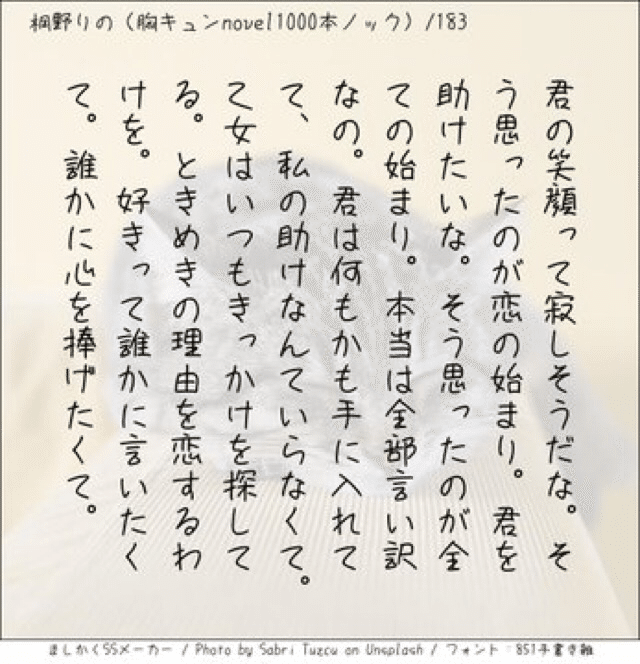 桐野りの（胸キュンnovel1000本ノック）/183
君の笑顔って寂しそうだな。そ
う思ったのが恋の始まり。君を
助けたいな。そう思ったのが全
ての始まり。本当は全部言い訳
なの。君は何もかも手に入れて
て、私の助けなんていらなくて。
乙女はいつもきっかけを探して
る。ときめきの理由を恋するわ
けを。好きって誰かに言いたく
て。誰かに心を捧げたくて。
ましかくSSメーカー / Photo by Sabri Tuzcu on Unsplash / フォント：851手書き雑